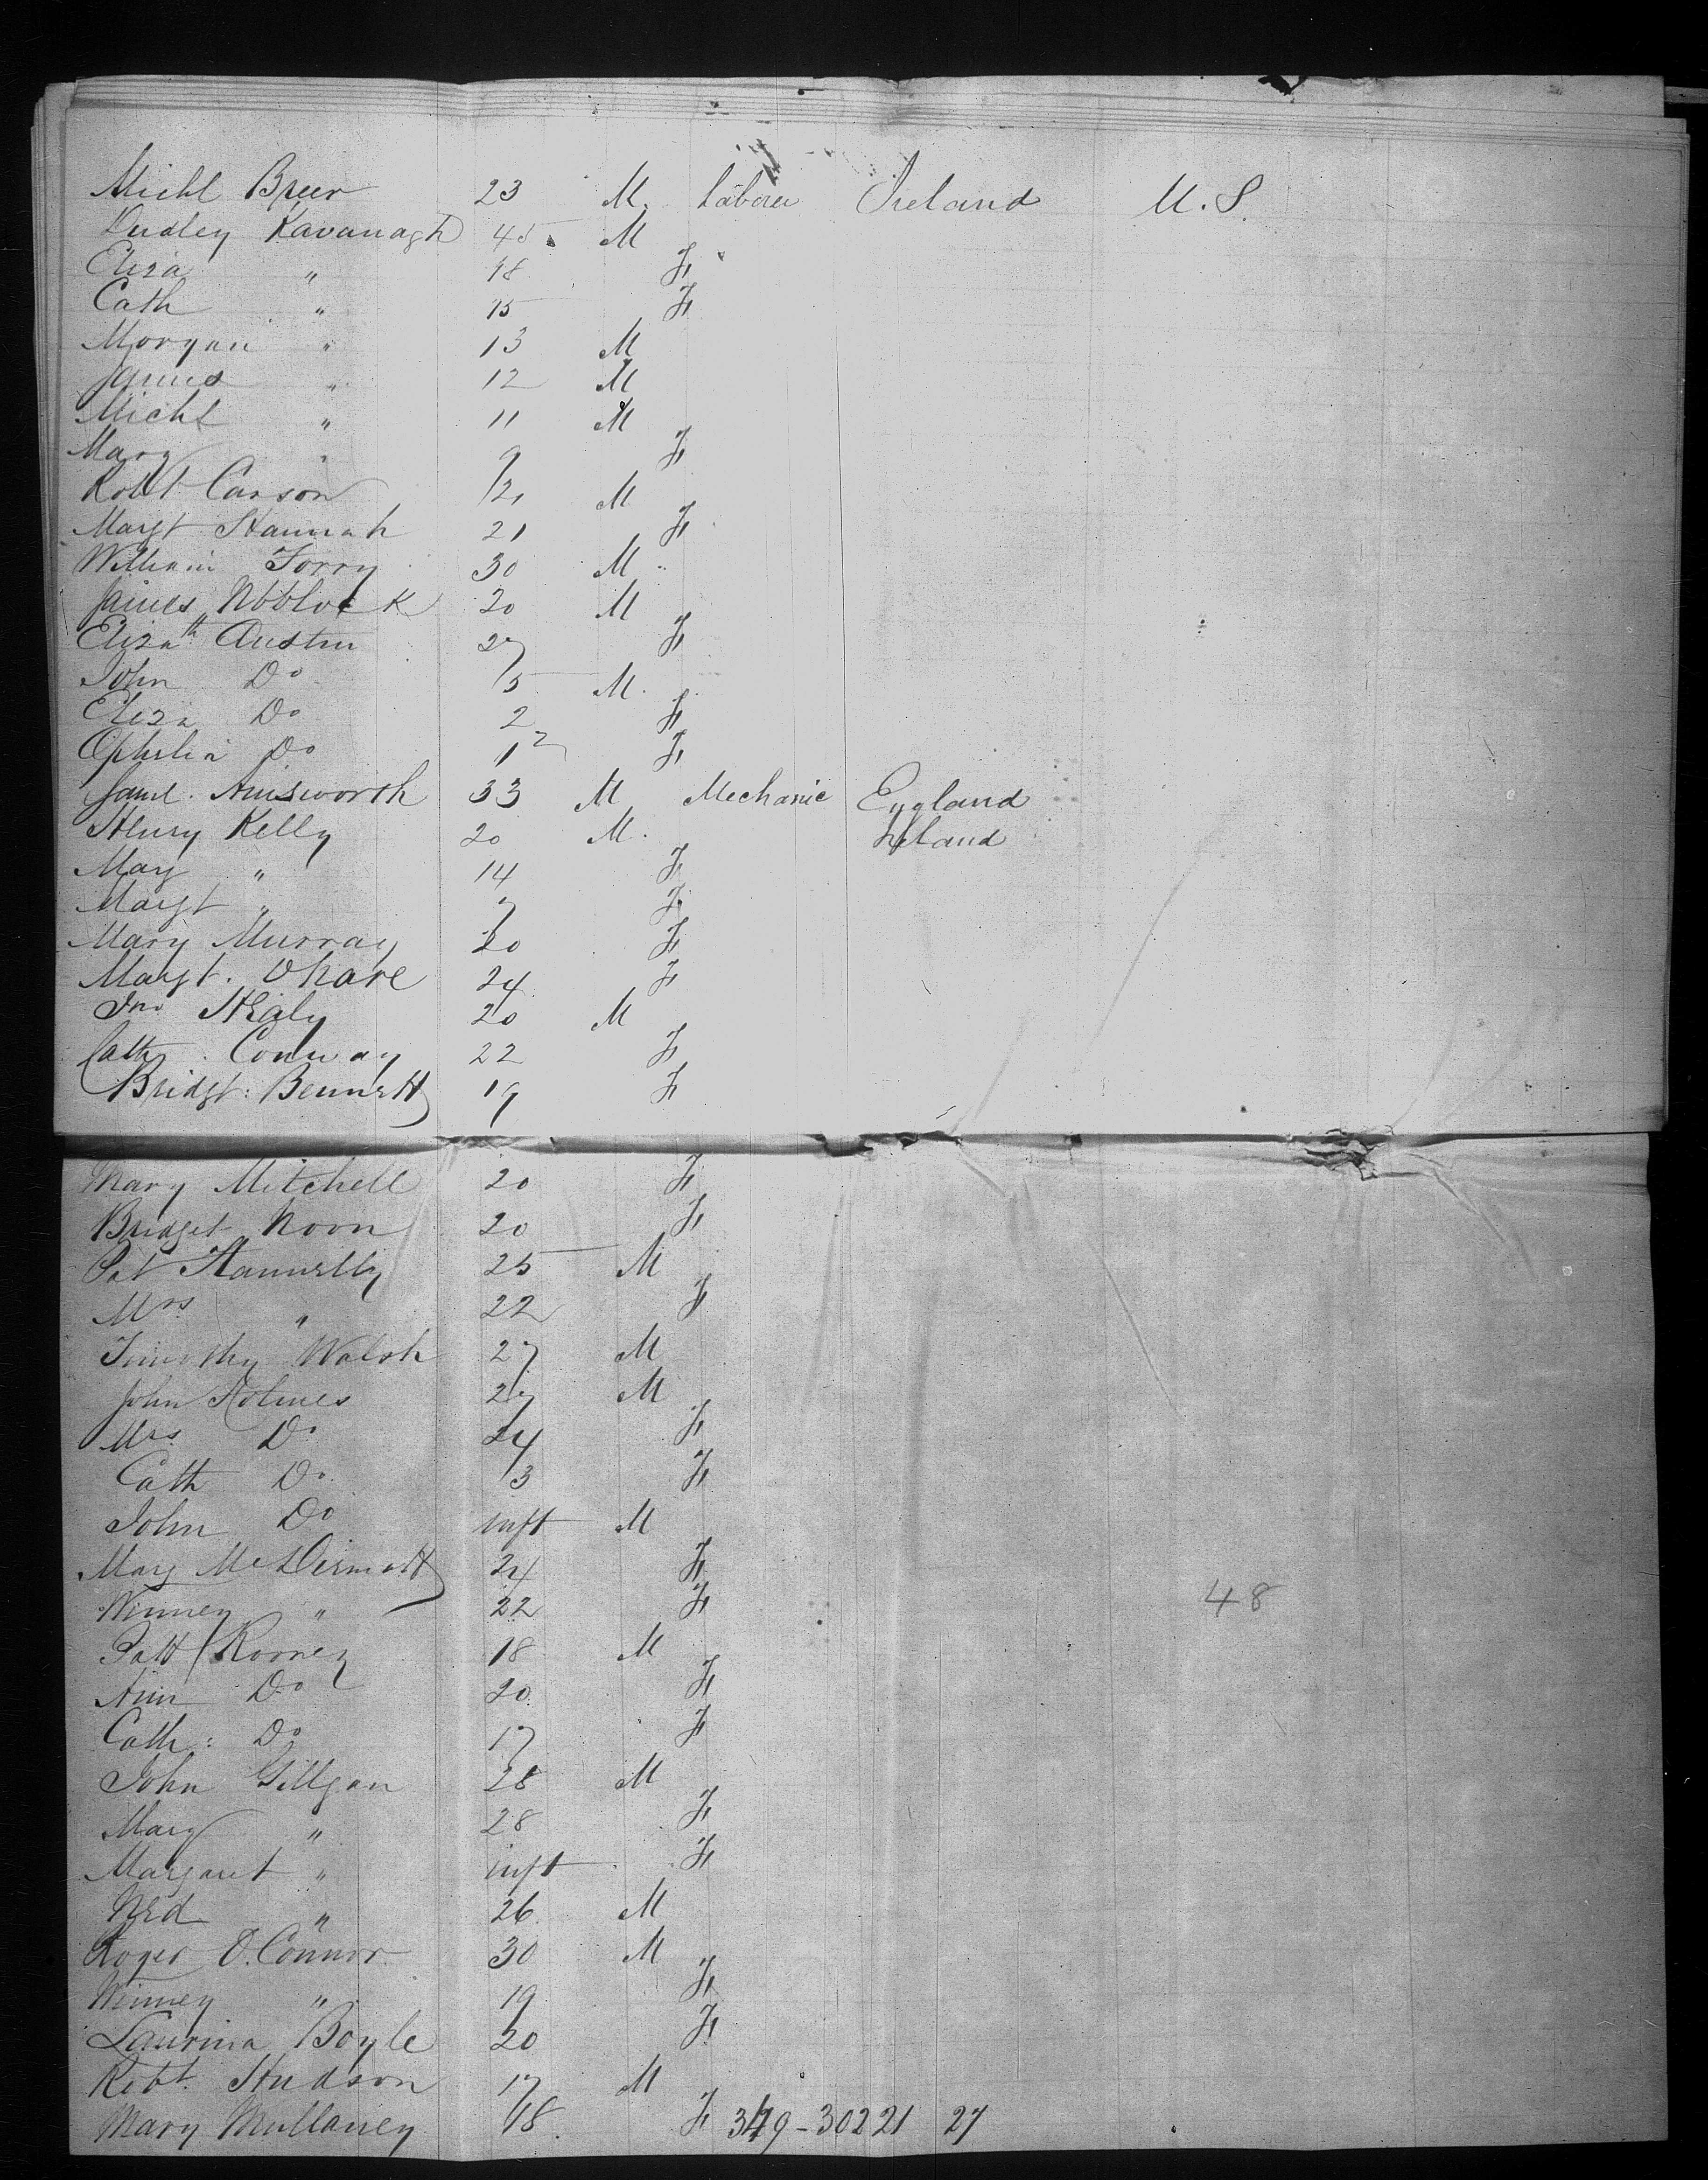 Michl Breer 23 M. Laborer Ireland U.S.
Dudley Kavanagh 45 M
Eliza " 18 F
Cath " 15 F
Morgan " 13 M
James " 12 M
Michl " 11 M
Mary " 9 F
Robt Carson 21 M
Margt Hannah 21 F
William Torry 30 M
James 20 M
Elizath Austin 27 F
John Do 5 M
Eliza Do 2 F
Ophelia Do 1 F
Saml. Ainsworth 33 M Mechanic England
Henry Kelly 20 M. Ireland
Mary " 14 F
Margt " 7 F
Mary Murray 20 F
Margt. Ohare 24 F
Jno Healy 20 M
Cath. Conway 22 F
Bridgt: Bennett 19 F
Mary Mitchell 20 F
Bridget Noon 20 F
Pat Hannelly 25 M
Mrs " 22 F
Timothy Walsh 27 M
John Holmes 27 M
Mrs Do 24 F
Cath Do 3 F
John Do inft M
Mary McDermott 24 F
Winney " 22 F 48
Patt Rooney 18 M
Ann Do 20 F
Cath: Do 17 F
John Gillgan 28 M
Mary " 28 F
Margaret " inft F
Ned " 26 M
Roger O.Connor 30 M
Winney " 19 F
Laurina Boyle 20 F
Robt. Hudson 17 M
Mary Mullaney 18. F 349-302 21 27